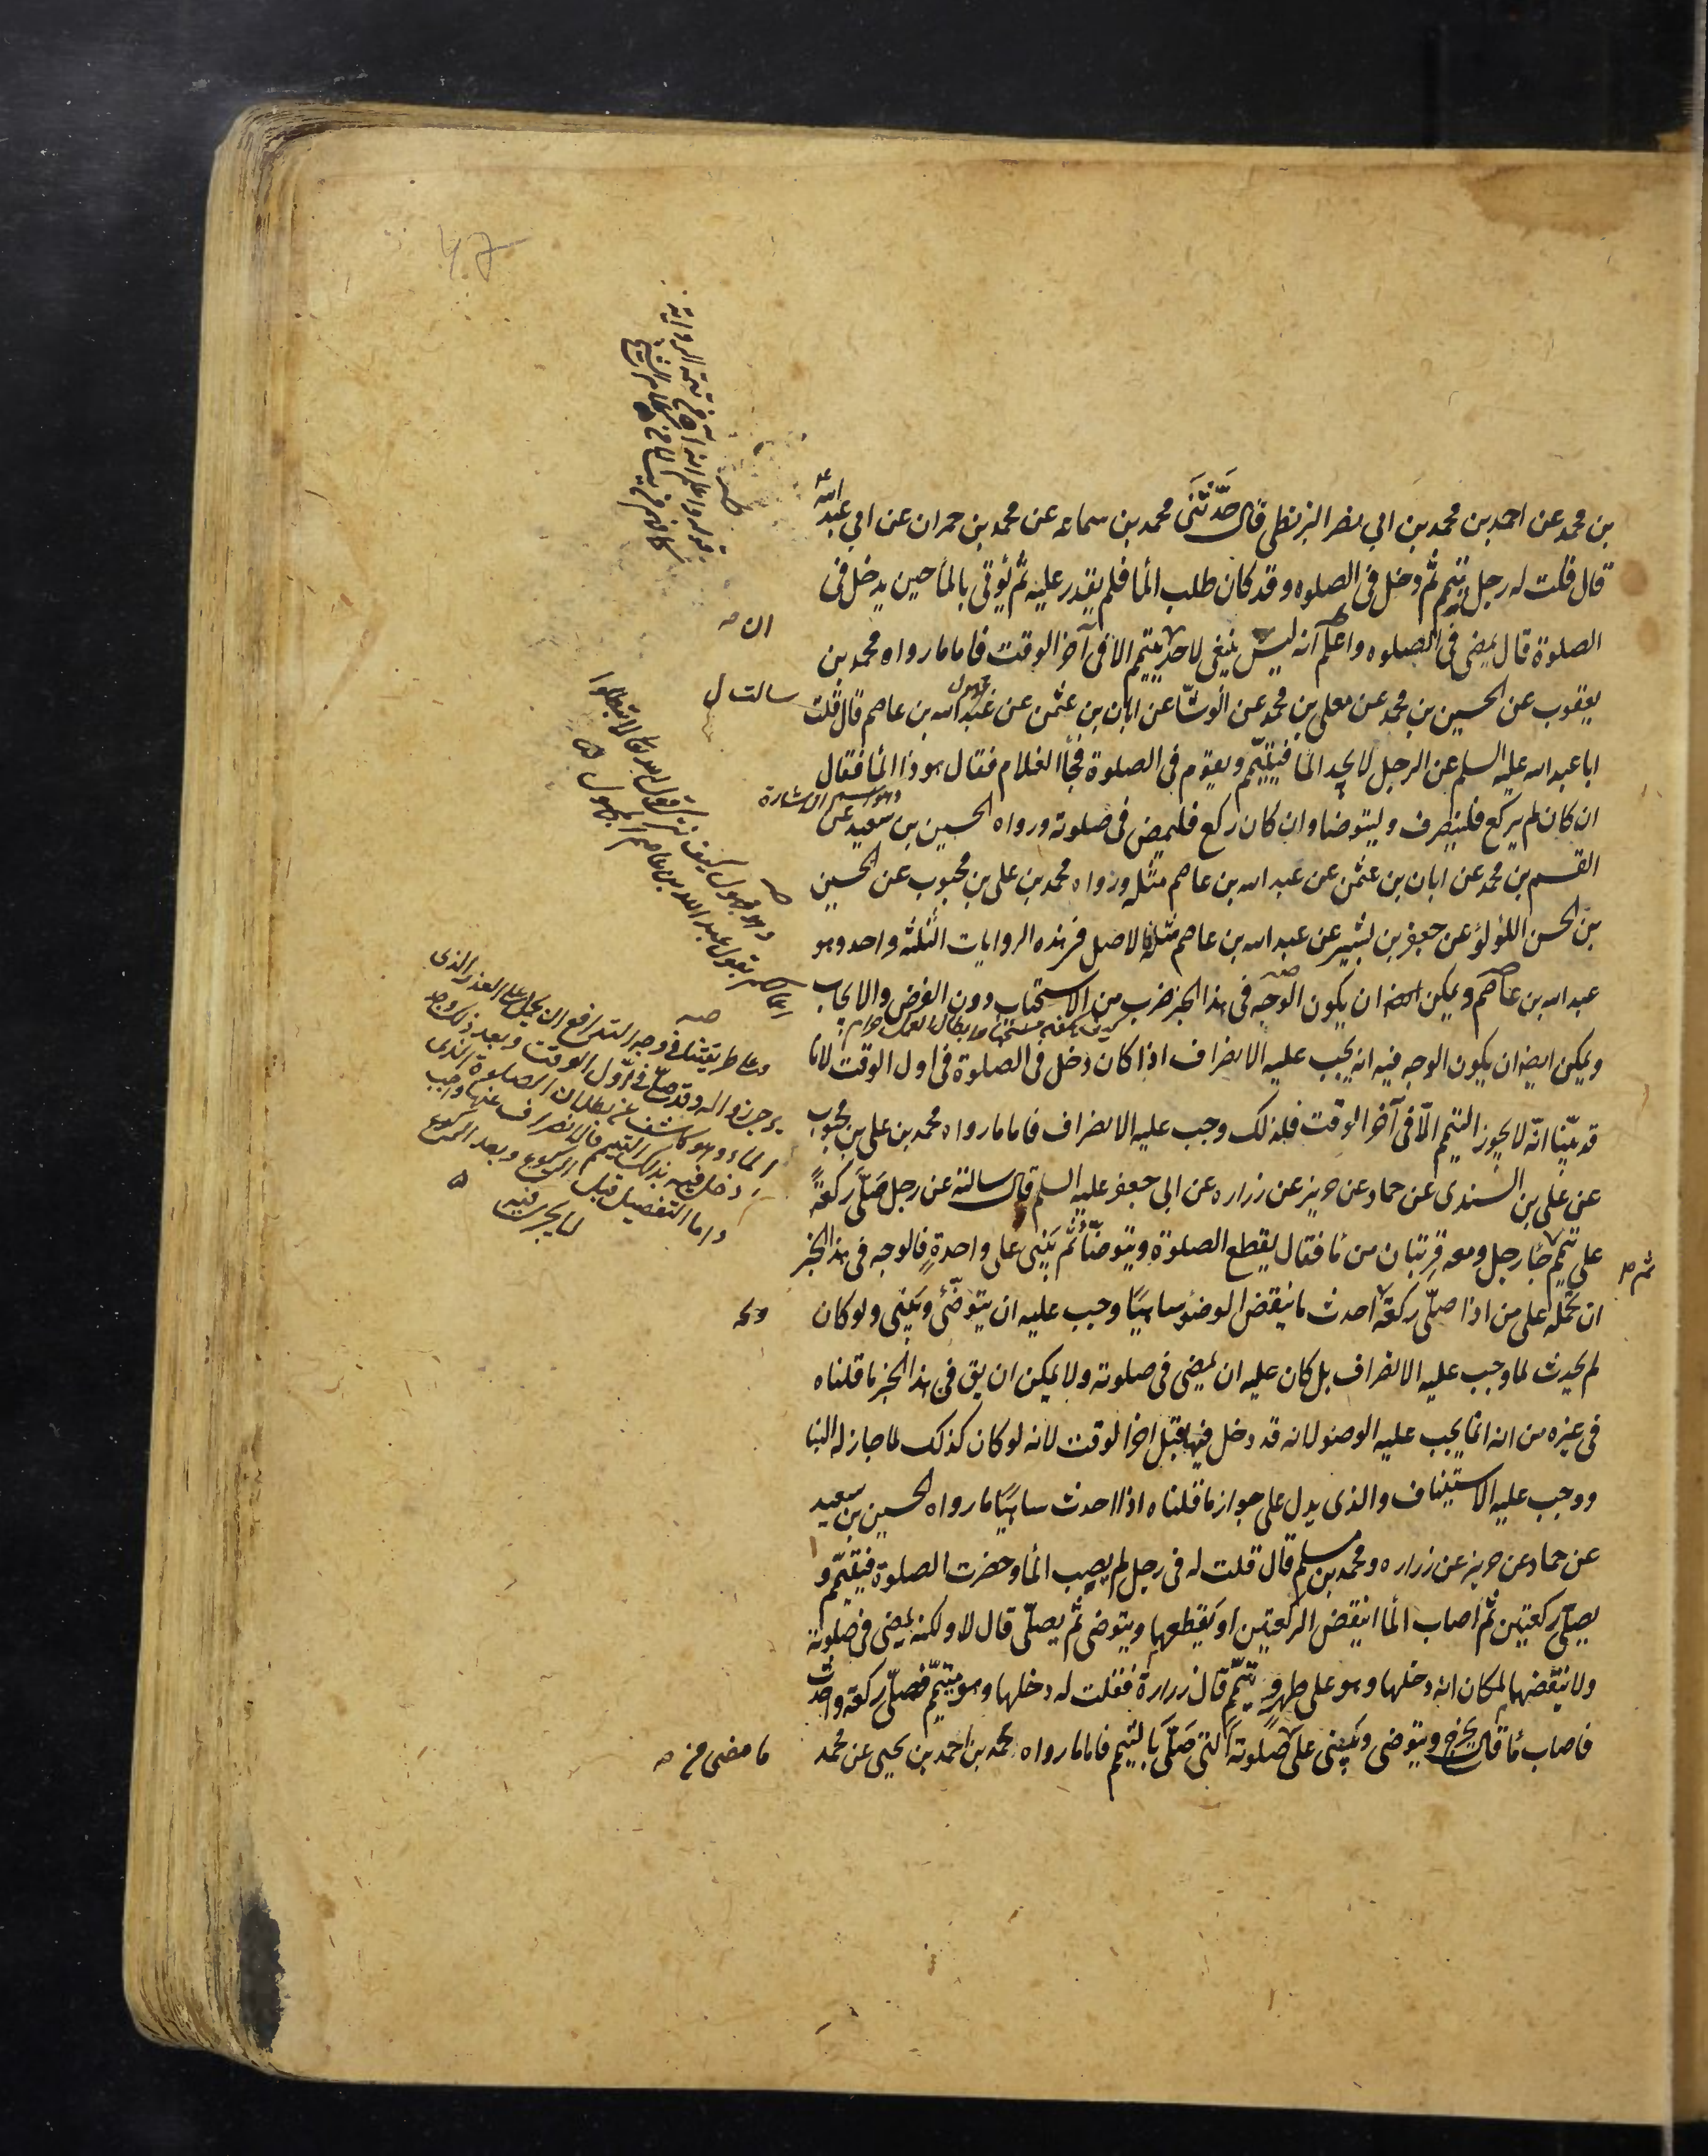 بن محمد عن احمد بن محمد بن ابي نصر البزنطى قال حَدَّثَنَى محمد بن سماعه عن محمد بن حمران عن ابي عبد الله ع
قال قلت له رجل تيمّم ثم دخل فى الصلوه وقد كان طلب المأ فلم يقدر عليه ثم يُؤتى بالمأ حين يدخل فى
الصلوة قال يمضى فى الصلوه واعلم انه ليس ينبغى لاحد يتيمم الا فى آخر الوقت فاما ما رواه محمد بن
يعقوب عن الحسين بن محمد عن معلى بن محمد عن الوشّا عن ابان بن عثمن عن عبد الله بن عاصم قال قلت
ابا عبد الله عليه السلم عن الرجل لا يجد المأ فيتيمّم ويقوم فى الصلوة فجأ الغلام فقال هو ذا المأ فقال
ان كان لم يركع فلينصرف وليتوضا وان كان ركع فليمض فى صلوته ورواه الحسين بن سعيد عن
القسم بن محمد عن ابان بن عثمن عن عبد الله بن عاصم مثله ورواه محمد بن على بن محبوب عن الحسين
بن الحسن اللؤلؤ عن جعفر بن بشير عن عبد الله بن عاصم مثله فالاصل فى هذه الروايات الثلثة واحد وهو
عبد الله بن عاصم ويمكن ان يكون الوجه فى هذا الخبر ضرب من الاستحباب دون الفرض والايجاب
ويمكن ايضا ان يكون الوجه فيه انه يجب عليه الانصراف اذا كان دخل فى الصلوة فى اول الوقت لانا
قد بيّنا انّه لا يجوز التيمم الّا فى آخر الوقت فلذلك وجب عليه الانصراف فاما ما رواه محمد بن على بن محبوب
عن على بن السندى عن حماد عن حريز عن زراره عن ابى جعفر عليه السلم قال سالته عن رجل صَلَّى ركعةً
على تيمم جأ رجل ومعه قِربتان من مأ فقال يقطع الصلوة ويتوضّأ ثم يَبنى على واحدةٍ فالوجه فى هذا الخبر
ان نحمله على من اذا صلّى ركعة احدث ما ينقض الوضؤ ساهيًا وجب عليه ان يتوضّى ويَبنى ولو كان
لم يحدث لما وجب عليه الانصراف بل كان عليه ان يمضى فى صلوته ولا يمكن ان يق فى هذا الخبر ما قلناه
فى غيره من انه انما يجب عليه الوضو لانه قد دخل فيها قبل اخر الوقت لانه لو كان كذلك لما جاز له البنا
ووجب عليه الاستيناف والذى يدل على جواز ما قلناه اذا احدث ساهيًا ما رواه الحسين بن سعيد
عن حماد عن حريز عن زراره ومحمد بن مسلم قال قلت له فى رجل لم يصيب المأ وحضرت الصلوة فيتيمّم و
يصلّى ركعتين ثم اصاب المأ اينقض الركعتين او يقطعهما ويتوضى ثم يصلّى قال لا ولكنه يمضى فى صلوته
ولا ينقضها لمكان انه دخلها وهو على طهرٍ وتيمّم قال زرارة فقلت له دخلها وهو متيمّم فصلّى ركعة واحدث
فاصاب مأ قال يخرج ويتوضى ويَبنى على صلوته التى صَلَّى بَالتيمم فاما ما رواه محمد بن احمد بن يحيى عن محمد
ان
سالت
وهو اسم الاشارة
مجهول
وعلى طريقتنا فى وجه التدافع ان يحمل على العذر الذى
يرجى زواله وقد صلّى فى اوّل الوقت وبعد ذلك وجد
الماء وهو كاشف عن بطلان الصلوة الذى
دخل فيه بذلك التيمم فالانصراف عنها واجب
واما التفصيل قبل الركوع وبعد الركوع
ما مضى من